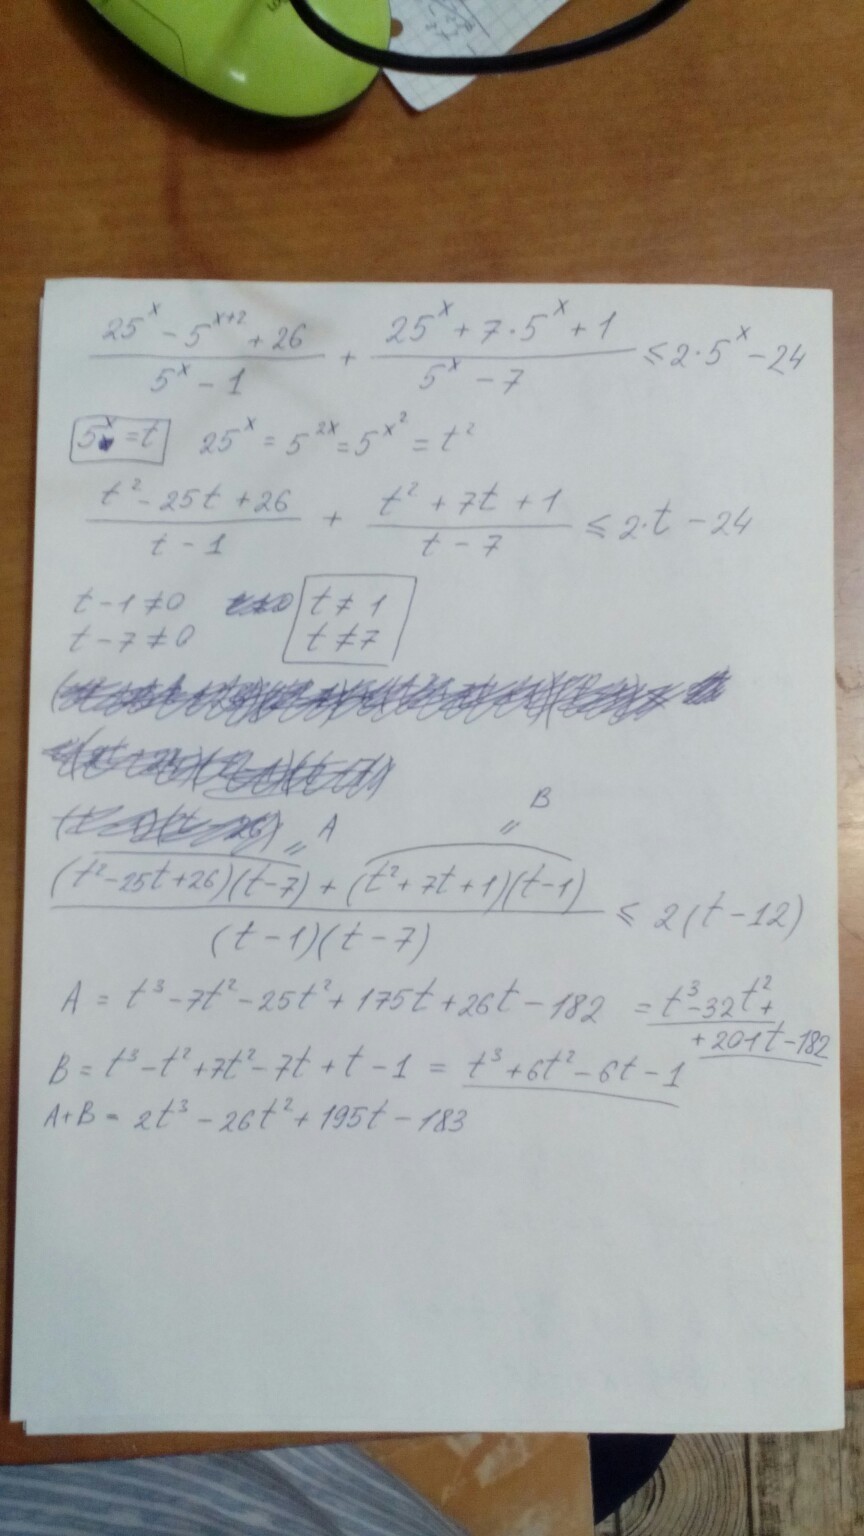 (25^x - 5^(x+2) + 26)/(5^x - 1) + (25^x + 7·5^x + 1)/(5^x - 7) ≤ 2·5^x - 24
5^x = t   25^x = 5^(2x) = 5^(x^2) = t²
(t² - 25t + 26)/(t - 1) + (t² + 7t + 1)/(t - 7) ≤ 2·t - 24
t - 1 ≠ 0   t ≠ 1
t - 7 ≠ 0   t ≠ 7
A   B
((t² - 25t + 26)(t - 7) + (t² + 7t + 1)(t - 1))/((t - 1)(t - 7)) ≤ 2(t - 12)
A = t³ - 7t² - 25t² + 175t + 26t - 182 = t³ - 32t² +
+ 201t - 182
B = t³ - t² + 7t² - 7t + t - 1 = t³ + 6t² - 6t - 1
A+B = 2t³ - 26t² + 195t - 183